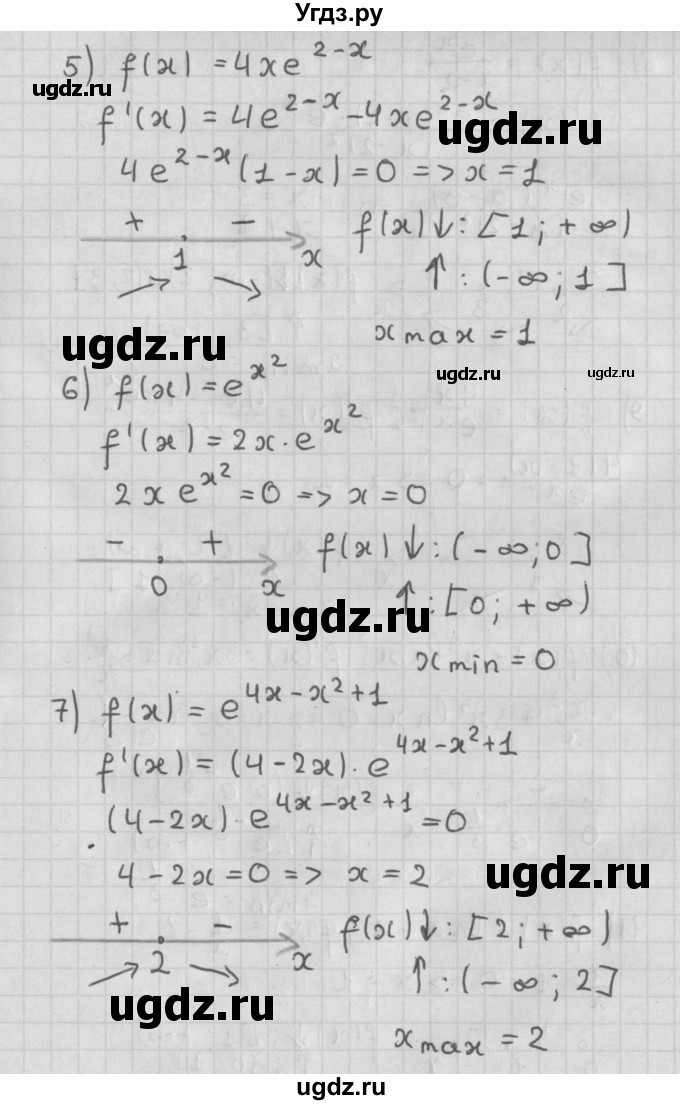 Угдз.ру
5) f(x) = 4xe^{2-x}
ugdz.ru
f'(x) = 4e^{2-x} - 4xe^{2-x}
ugdz.ru
4e^{2-x}(1-x) = 0 => x = 1
+ − f(x)↓: [1; +∞)
1 x ↑: (-∞; 1]
x max = 1
ugdz.ru
ugdz.ru
ugdz.ru
6) f(x) = e^{x^2}
f'(x) = 2x·e^{x^2}
2xe^{x^2} = 0 => x = 0
− + f(x)↓: (-∞; 0]
0 x ↑: [0; +∞)
ugdz.ru
x min = 0
7) f(x) = e^{4x-x^2+1}
f'(x) = (4-2x)·e^{4x-x^2+1}
ugdz.ru
(4-2x)·e^{4x-x^2+1} = 0
4-2x = 0 => x = 2
ugdz.ru
+ − f(x)↓: [2; +∞)
2 x ↑: (-∞; 2]
ugdz.ru
x max = 2
ugdz.ru